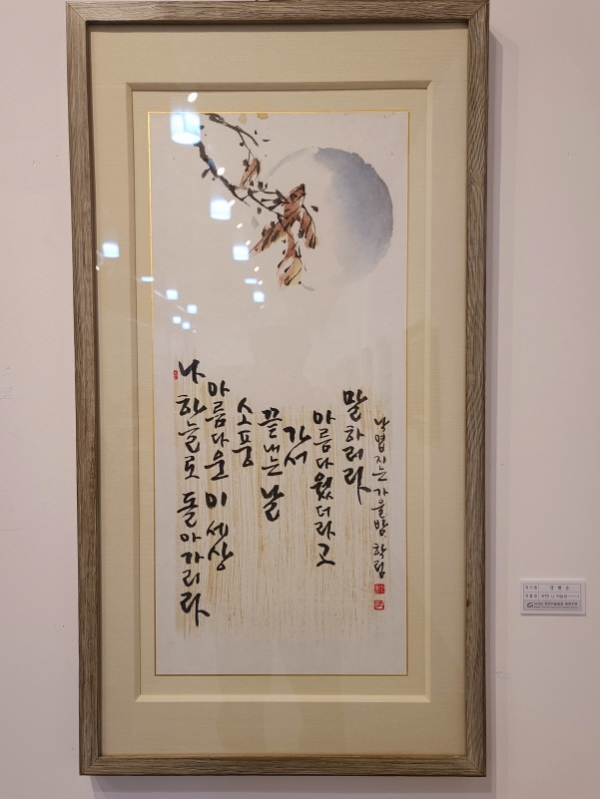 나 하늘로 돌아가리라
아름다운 이 세상
소풍
끝내는 날
가서
아름다웠더라고
말하리라
낙엽지는 가을밤 학림